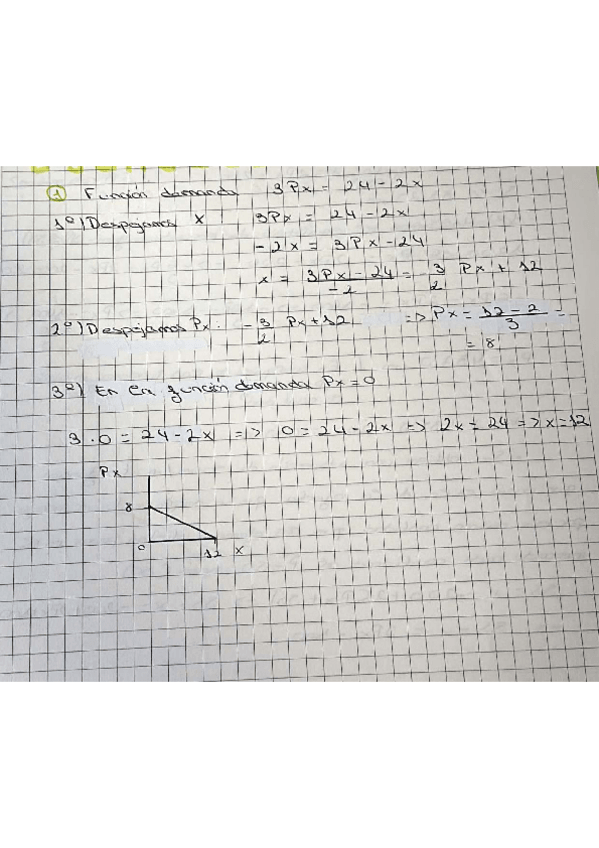 ① Función demanda 3Px = 24 - 2x
1º) Despejamos x 3Px = 24 - 2x
- 2x = 3Px - 24
x = 3Px - 24 / -2 = - 3/2 Px + 12
2º) Despejamos Px. - 3/2 Px + 12 => Px = 12 - 2 / 3 =
= 8
3º) En la función demanda Px = 0
3 · 0 = 24 - 2x => 0 = 24 - 2x -> 2x = 24 => x = 12
Px
8
0 12 x